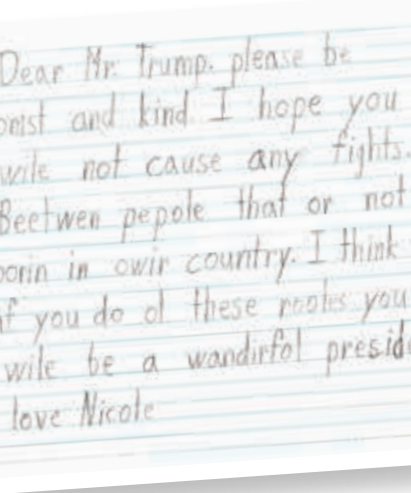 Dear Mr. Trump. please be
onist and kind I hope you
wile not cause any fights.
Beetwen pepole that or not
borin in owir country. I think
if you do ol these rooles you
wile be a wandirfol presid
love Nicole